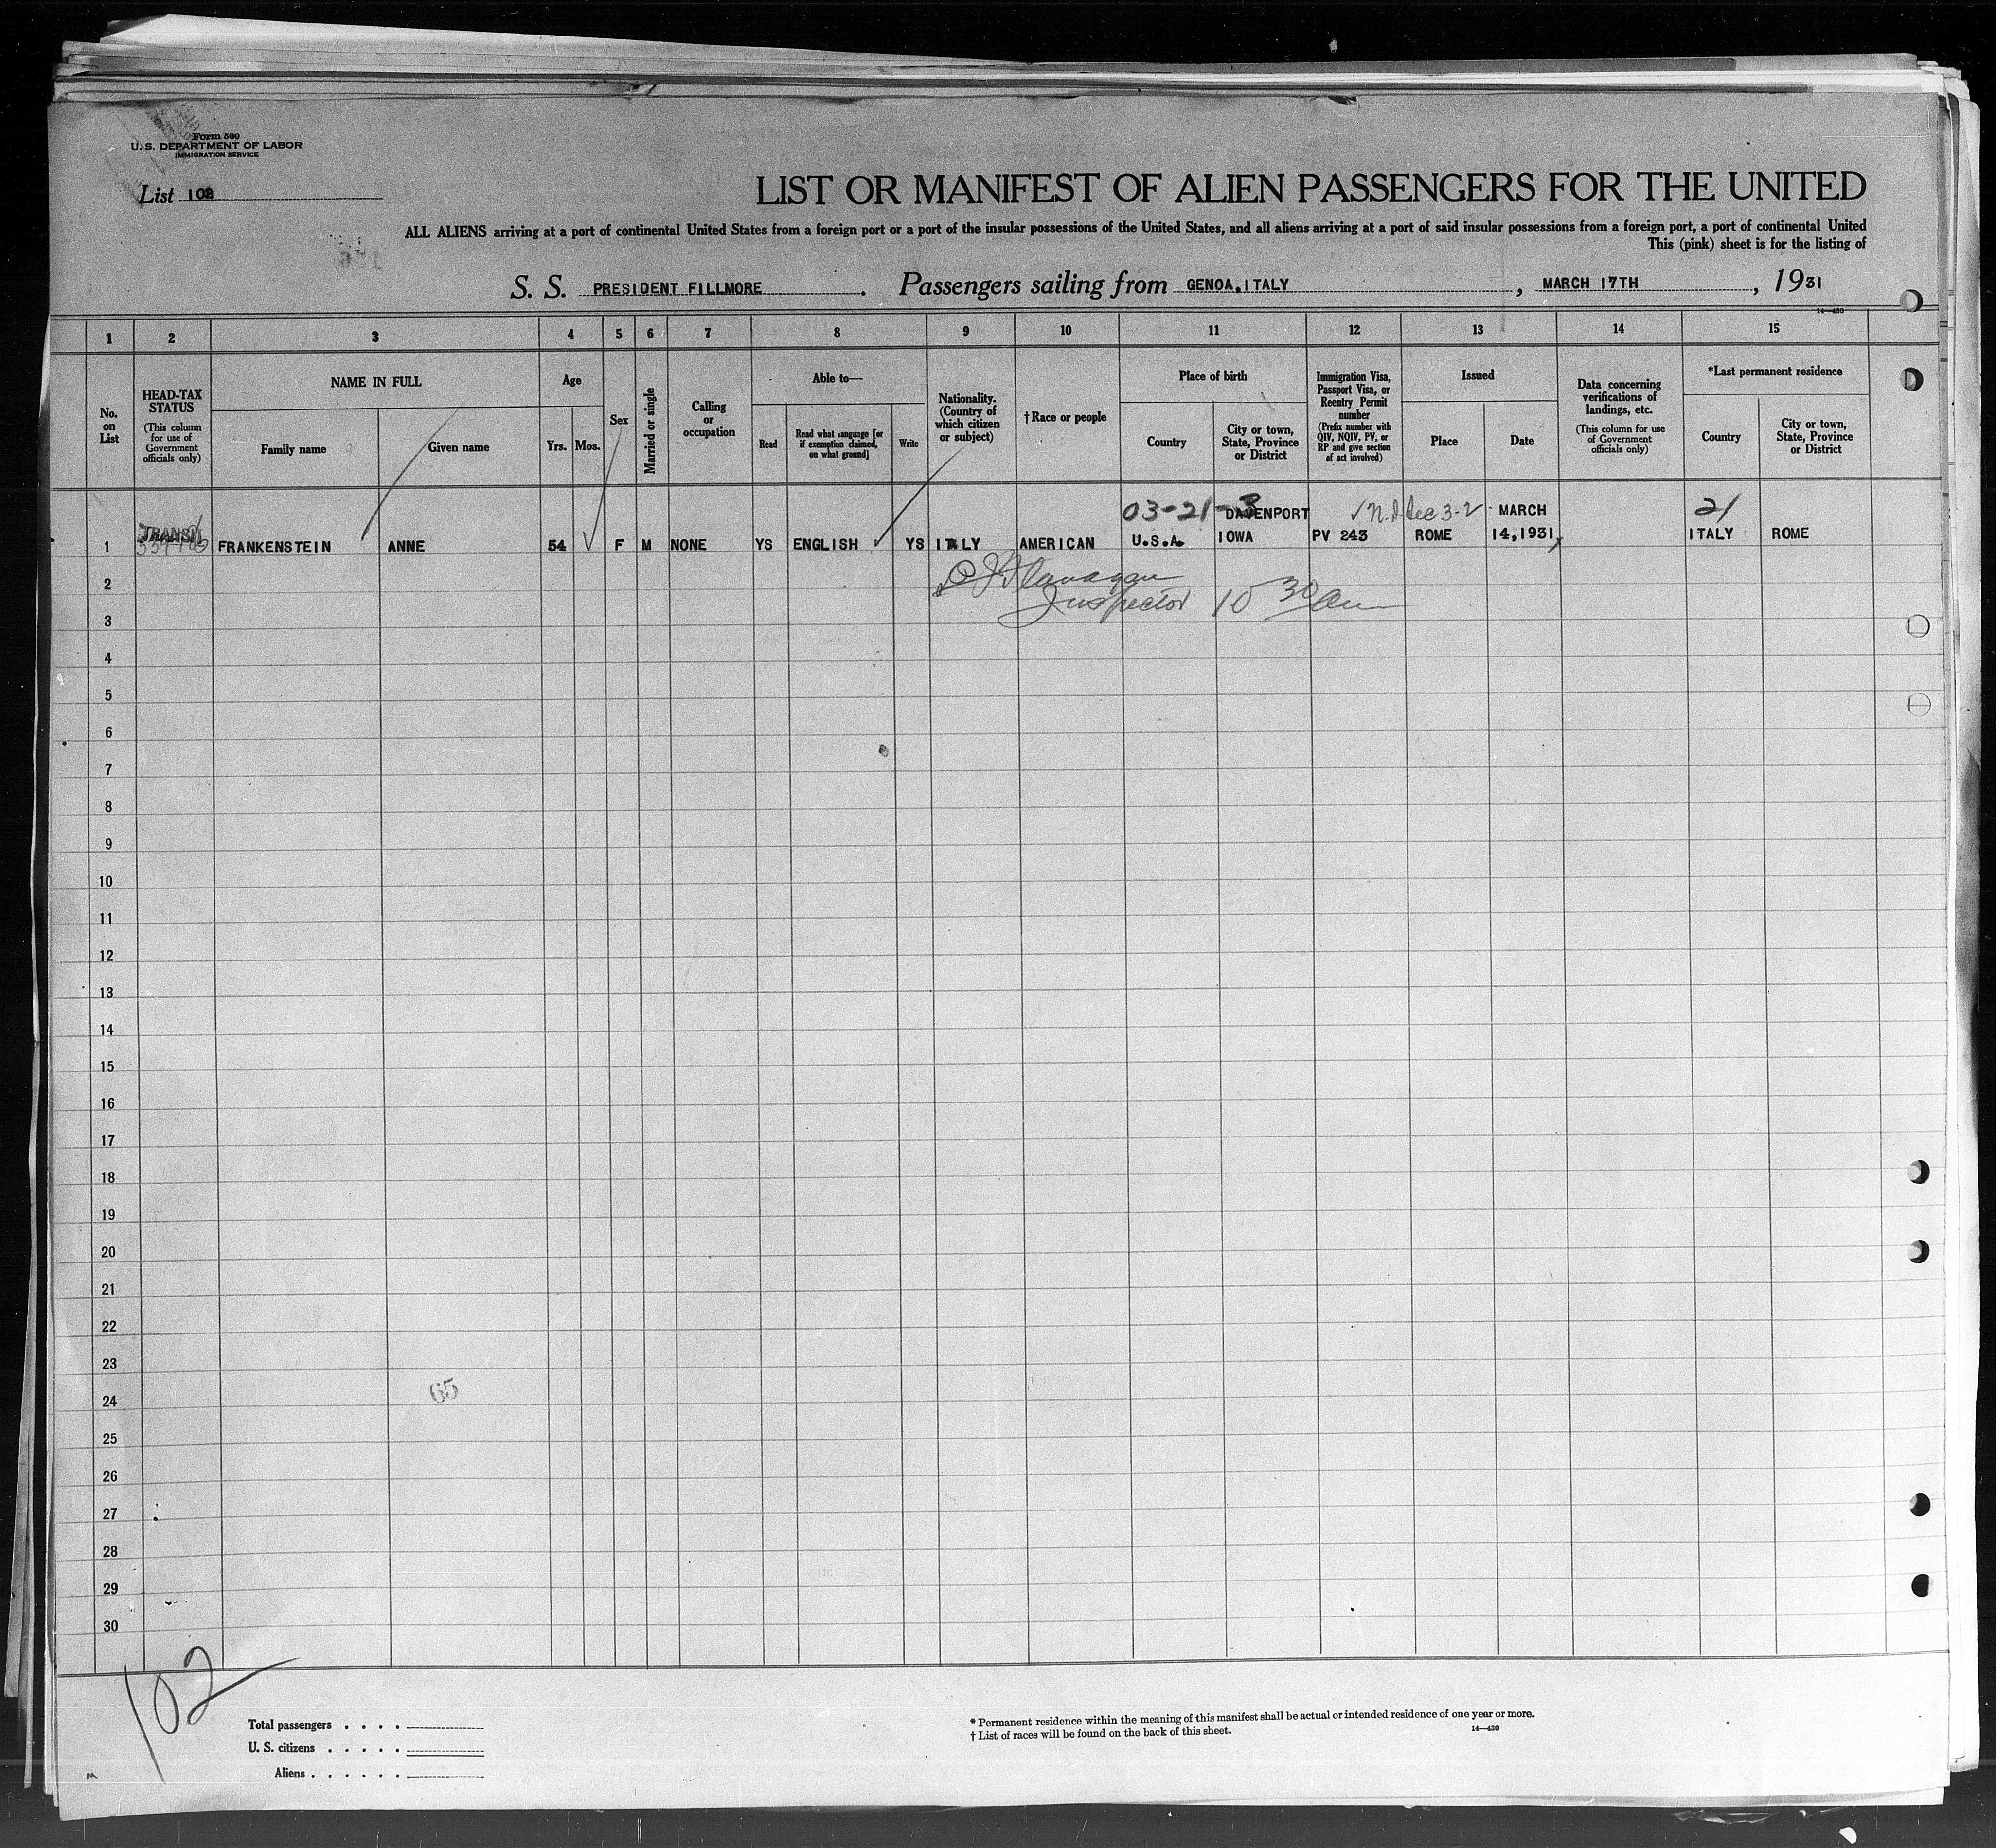 Form 500
U. S. DEPARTMENT OF LABOR
IMMIGRATION SERVICE
List 102
LIST OR MANIFEST OF ALIEN PASSENGERS FOR THE UNITED
ALL ALIENS arriving at a port of continental United States from a foreign port or a port of the insular possessions of the United States, and all aliens arriving at a port of said insular possessions from a foreign port, a port of continental United
This (pink) sheet is for the listing of
S. S. PRESIDENT FILLMORE. Passengers sailing from GENOA, ITALY, MARCH 17TH, 1931
14—430
1 2 3 4 5 6 7 8 9 10 11 12 13 14 15
No. on List
HEAD-TAX STATUS
(This column for use of Government officials only)
NAME IN FULL
Family name
Given name
Age
Yrs.
Mos.
Sex
Married or single
Calling or occupation
Able to—
Read
Read what language [or if exemption claimed, on what ground]
Write
Nationality. (Country of which citizen or subject)
†Race or people
Place of birth
Country
City or town, State, Province or District
Immigration Visa, Passport Visa, or Reentry Permit number
(Prefix number with QIV, NQIV, PV, or RP and give section of act involved)
Issued
Place
Date
Data concerning verifications of landings, etc.
(This column for use of Government officials only)
*Last permanent residence
Country
City or town, State, Province or District
03-21-3 DAVENPORT Sec 3-2 MARCH 21
TRANSIT
1 FRANKENSTEIN ANNE 54 F M NONE YS ENGLISH YS ITALY AMERICAN U.S.A. IOWA PV 243 ROME 14,1931, ITALY ROME
2 Flanagan
3 Inspector 10 30 am
4
5
6
7
8
9
10
11
12
13
14
15
16
17
18
19
20
21
22
23
65
24
25
26
27
28
29
30
102
Total passengers . . . .
U. S. citizens . . . . .
Aliens . . . . . .
* Permanent residence within the meaning of this manifest shall be actual or intended residence of one year or more.
† List of races will be found on the back of this sheet.
14—430